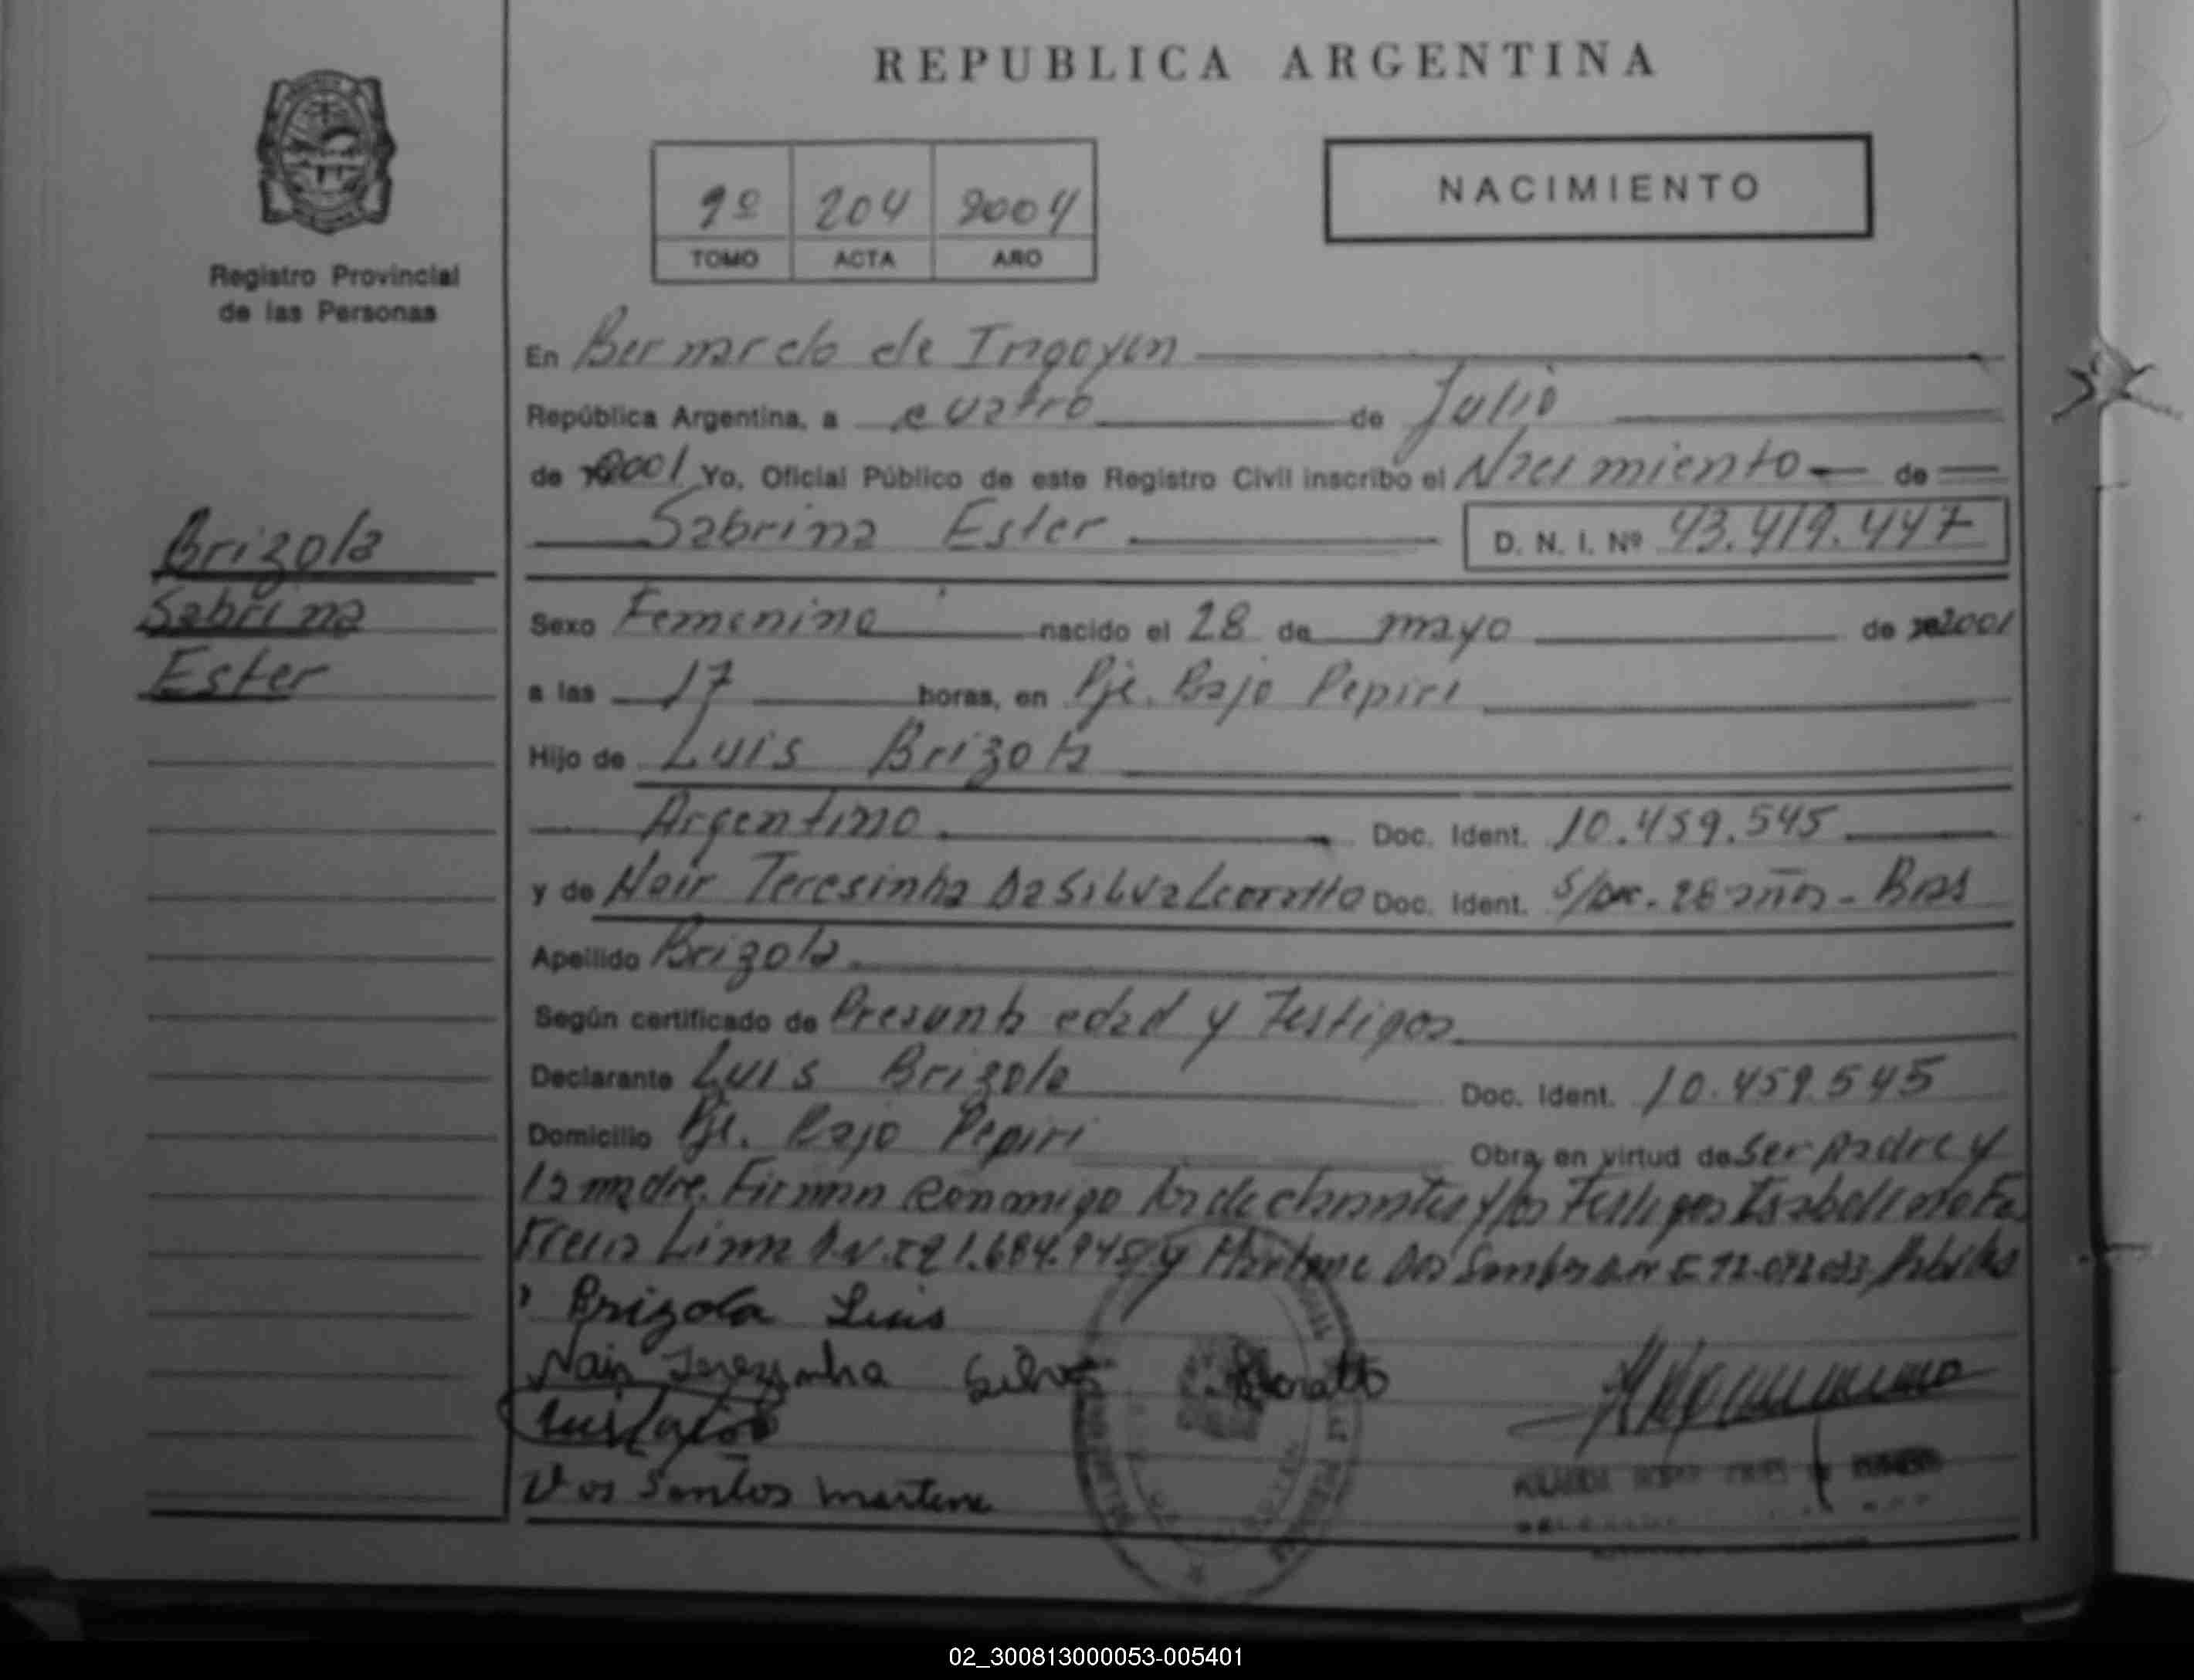 REPUBLICA ARGENTINA
NACIMIENTO
204
TOMO ACTA AÑO
Registro Provincial
de las Personas
En Bernardo de Irigoyen
República Argentina, a cuatro de Julio
de 2001 Yo, Oficial Público de este Registro Civil inscribo el Nacimiento de
Sabrina Ester D. N. I. Nº 43.419.447
Brizola
Sabrina
Ester
Sexo Femenino nacido el 28 de mayo de 2001
a las 17 horas, en Pje. Bajo Pepiri
Hijo de Luis Brizola
Argentino Doc. Ident. 10.459.545
y de Nair Teresinha Da Silva Doc. Ident. S/Doc. 28 años - Bras
Apellido Brizola
Según certificado de Presunta edad y Testigos
Declarante Luis Brizola Doc. Ident. 10.459.545
Domicilio Pje. Bajo Pepiri Obra en virtud de Ser padre y
la madre. Firman conmigo los declarantes y los Testigos
Lima y Marlene Dos Santos
Brizola Luis
Nair Terezinha Silva
Dos Santos Marlene
02_300813000053-005401